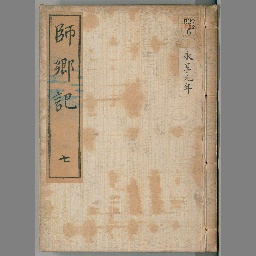 師郷記
七
永享元年